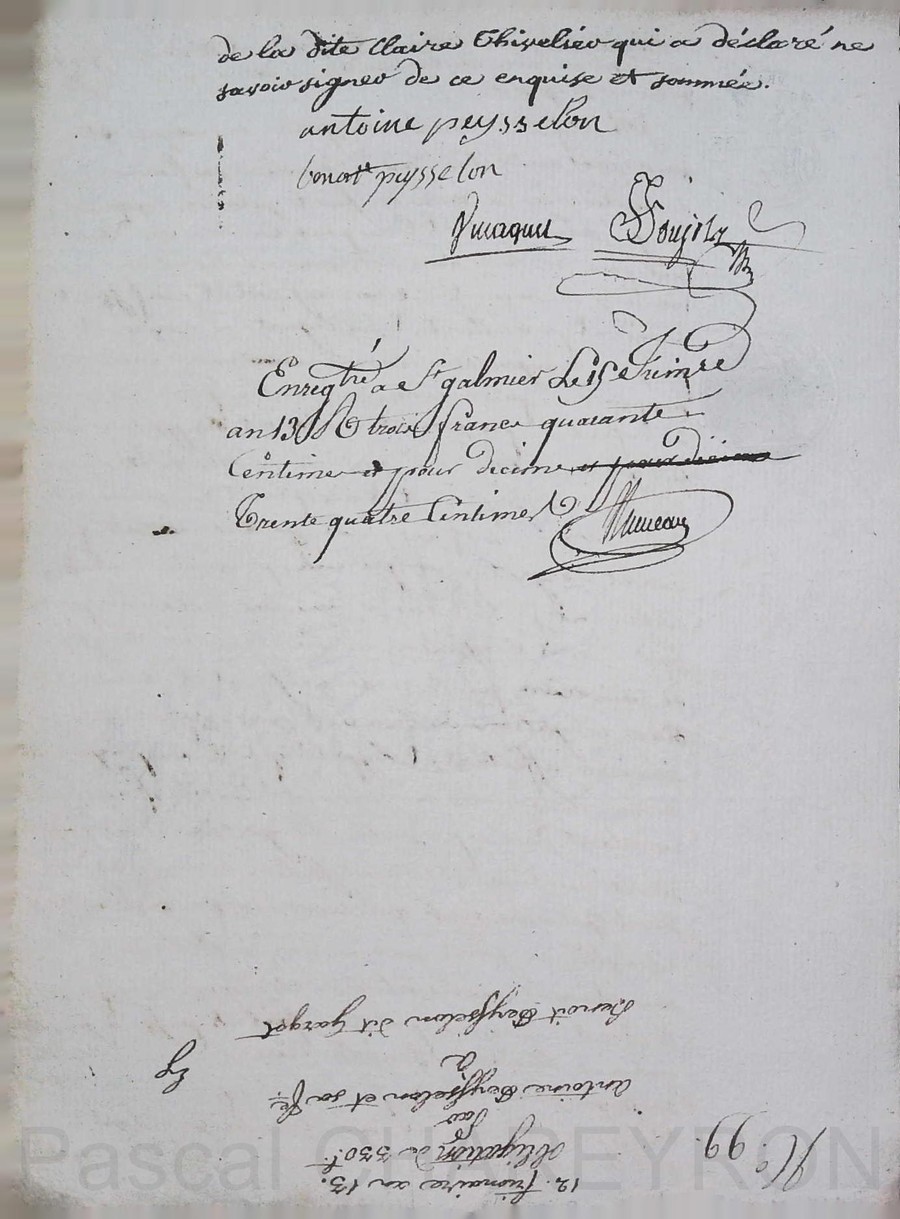 de la dite Claire Thivelier qui a déclaré ne
savoir signer de ce enquise et sommée.
antoine peysselon
benoit peysselon
Enregtré a St galmier Le 15 frimre
an 13 trois francs quarante
Centimes et pour decime et pour décime
Trente quatre Centimes
N.° 99.
12. frimaire an 13.
obligation de 330f
par
antoine Peysselon et sa fe
à
Benoit Peysselon dit gargot
Pascal CHAREYRON